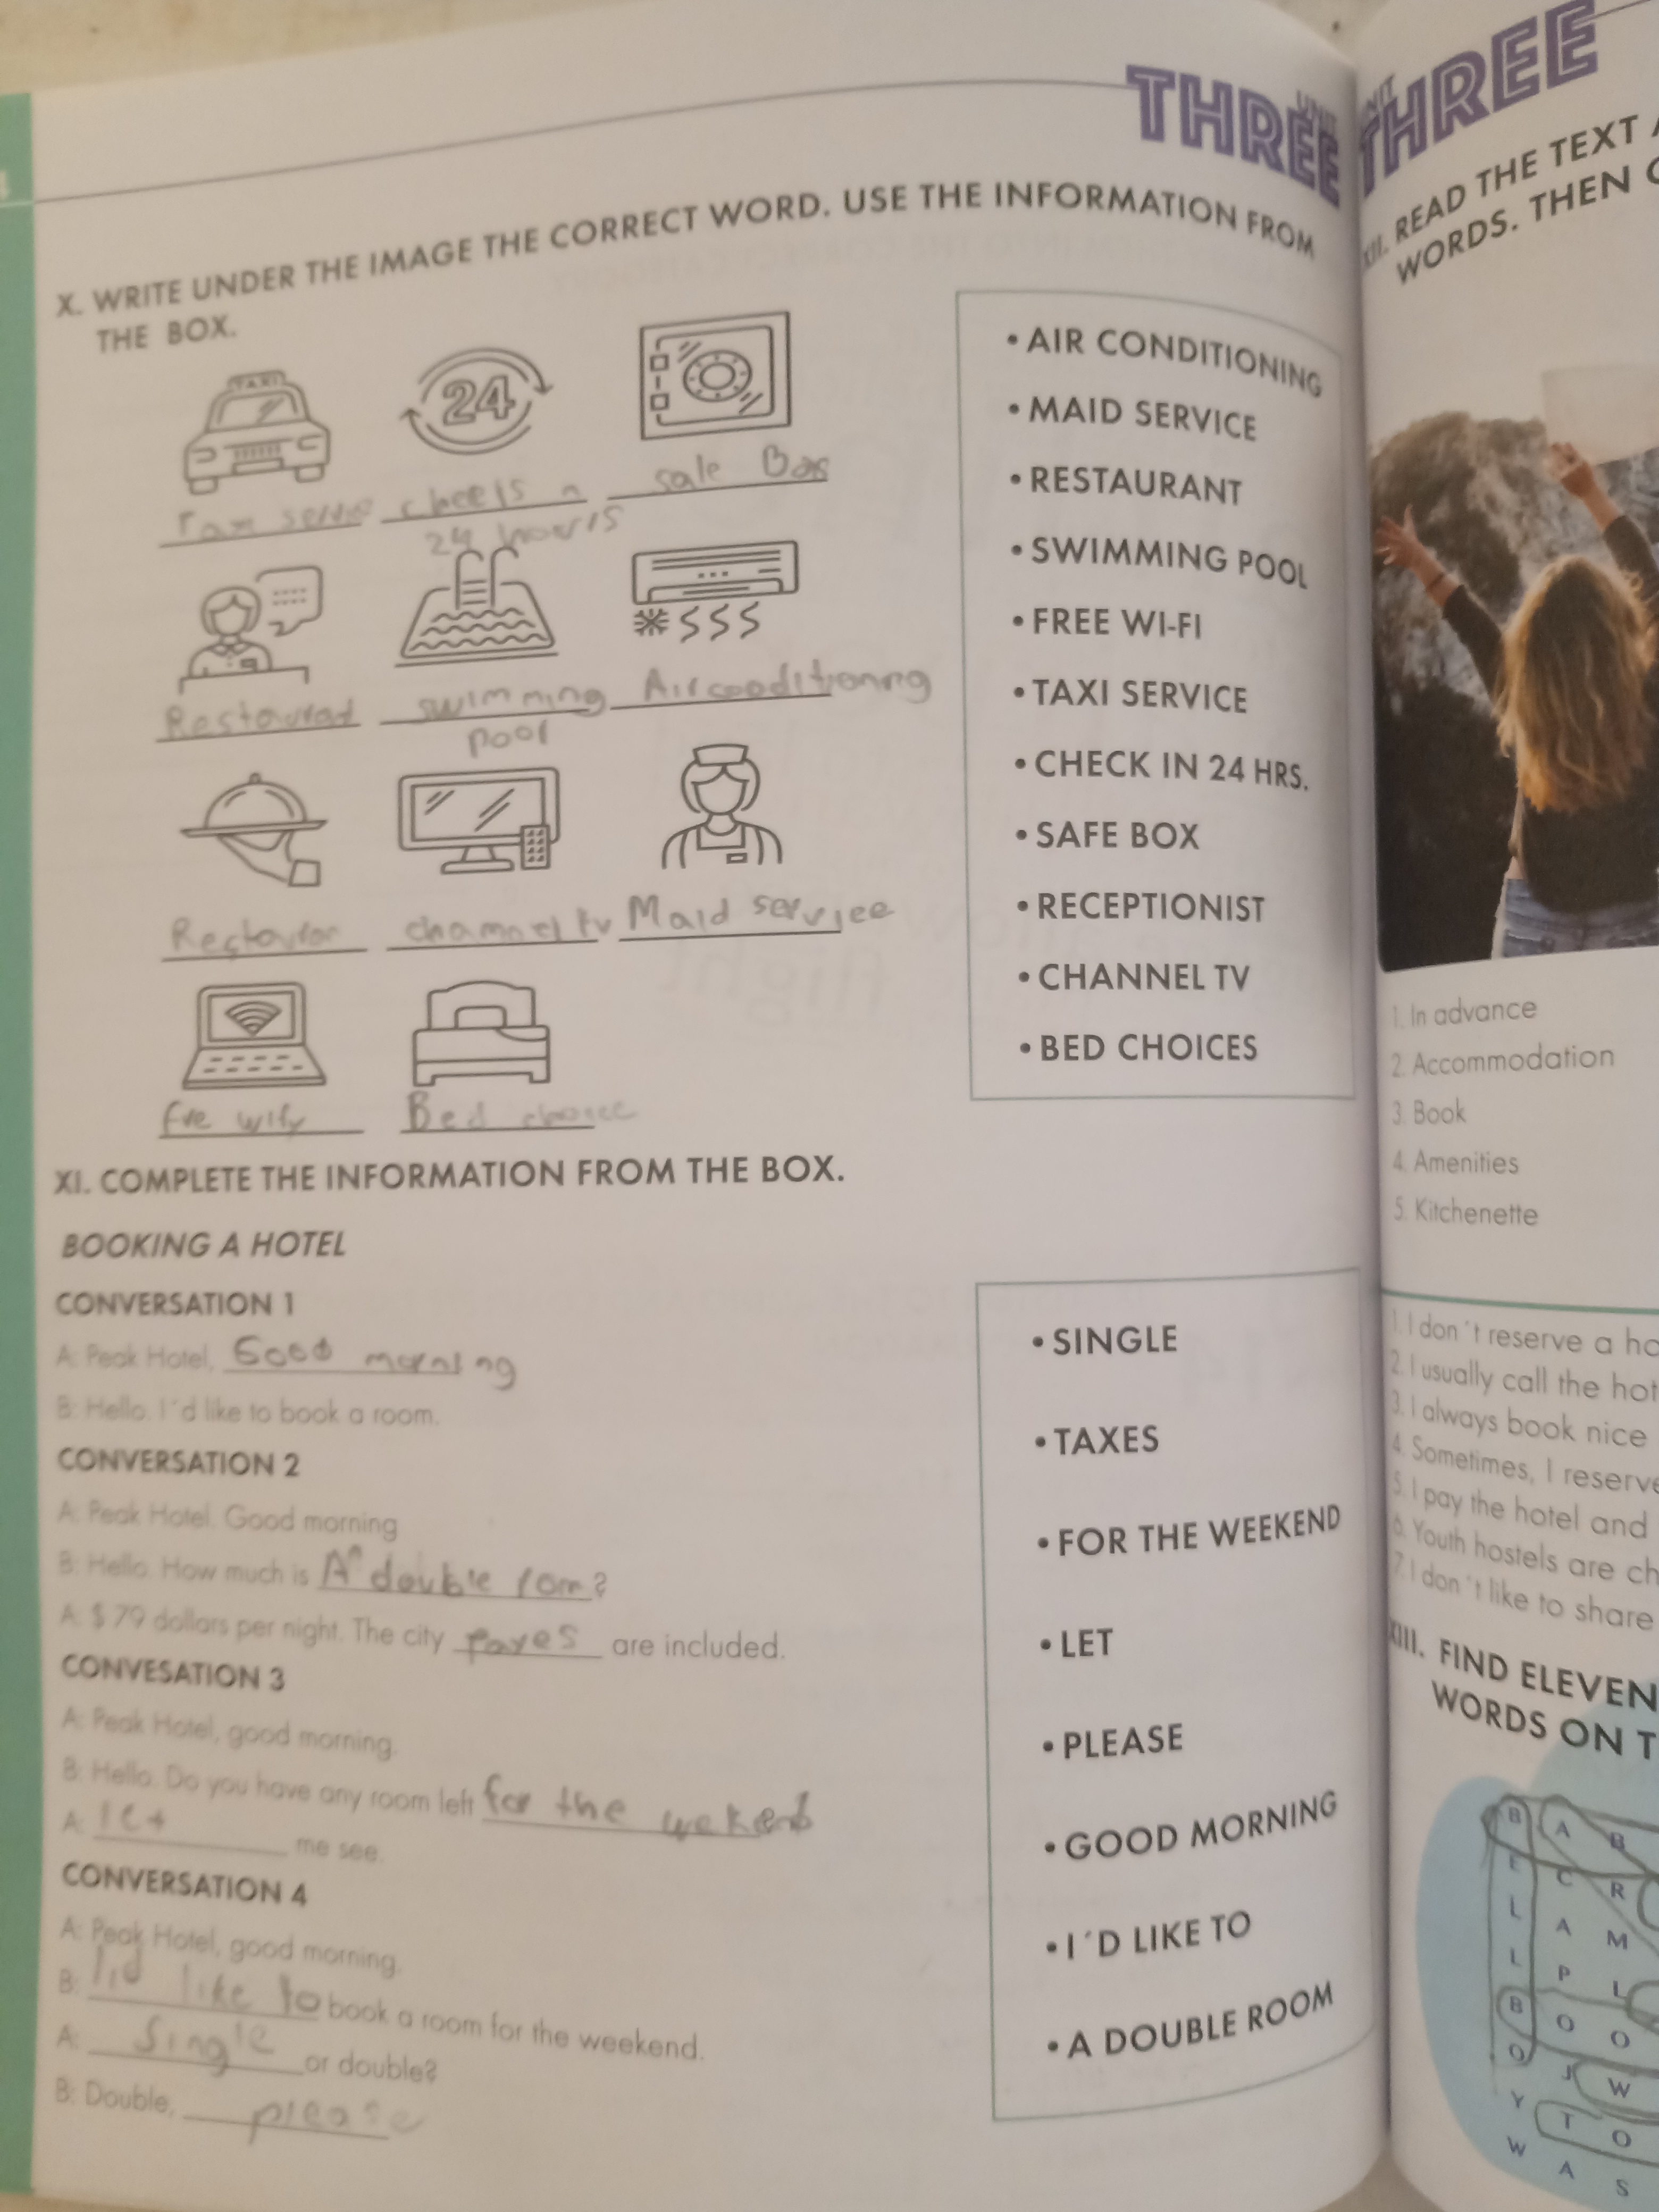 UNIT
THREE
X. WRITE UNDER THE IMAGE THE CORRECT WORD. USE THE INFORMATION FROM
THE BOX.
TAXI
24
sale Box
24 hours
Restaurat
swimming
pool
Air conditioning
channel tv
Maid service
fre wify
Bed choice
• AIR CONDITIONING
• MAID SERVICE
• RESTAURANT
• SWIMMING POOL
• FREE WI-FI
• TAXI SERVICE
• CHECK IN 24 HRS.
• SAFE BOX
• RECEPTIONIST
• CHANNEL TV
• BED CHOICES
XI. COMPLETE THE INFORMATION FROM THE BOX.
BOOKING A HOTEL
CONVERSATION 1
A: Peak Hotel, Good morning
B: Hello. I´d like to book a room.
CONVERSATION 2
A: Peak Hotel. Good morning
B: Hello. How much is A double rom?
A: $ 79 dollars per night. The city are included.
CONVESATION 3
A: Peak Hotel, good morning.
B: Hello. Do you have any room left for the wekend
A: let me see.
CONVERSATION 4
A: Peak Hotel, good morning.
B: I'd like to book a room for the weekend.
A: Single or double?
B: Double, please
• SINGLE
• TAXES
• FOR THE WEEKEND
• LET
• PLEASE
• GOOD MORNING
• I´D LIKE TO
• A DOUBLE ROOM
UNIT
THREE
XII. READ THE TEXT
WORDS. THEN
1. In advance
2. Accommodation
3. Book
4. Amenities
5. Kitchenette
1. I don´t reserve a
2. I usually call the
3. I always book nice
4. Sometimes, I
5. I pay the hotel and
6. Youth hostels are
7. I don´t like to share
XIII. FIND ELEVEN
WORDS ON
B A B
E C R
L A M
L P L
B O O
O J W
Y T O
W A S